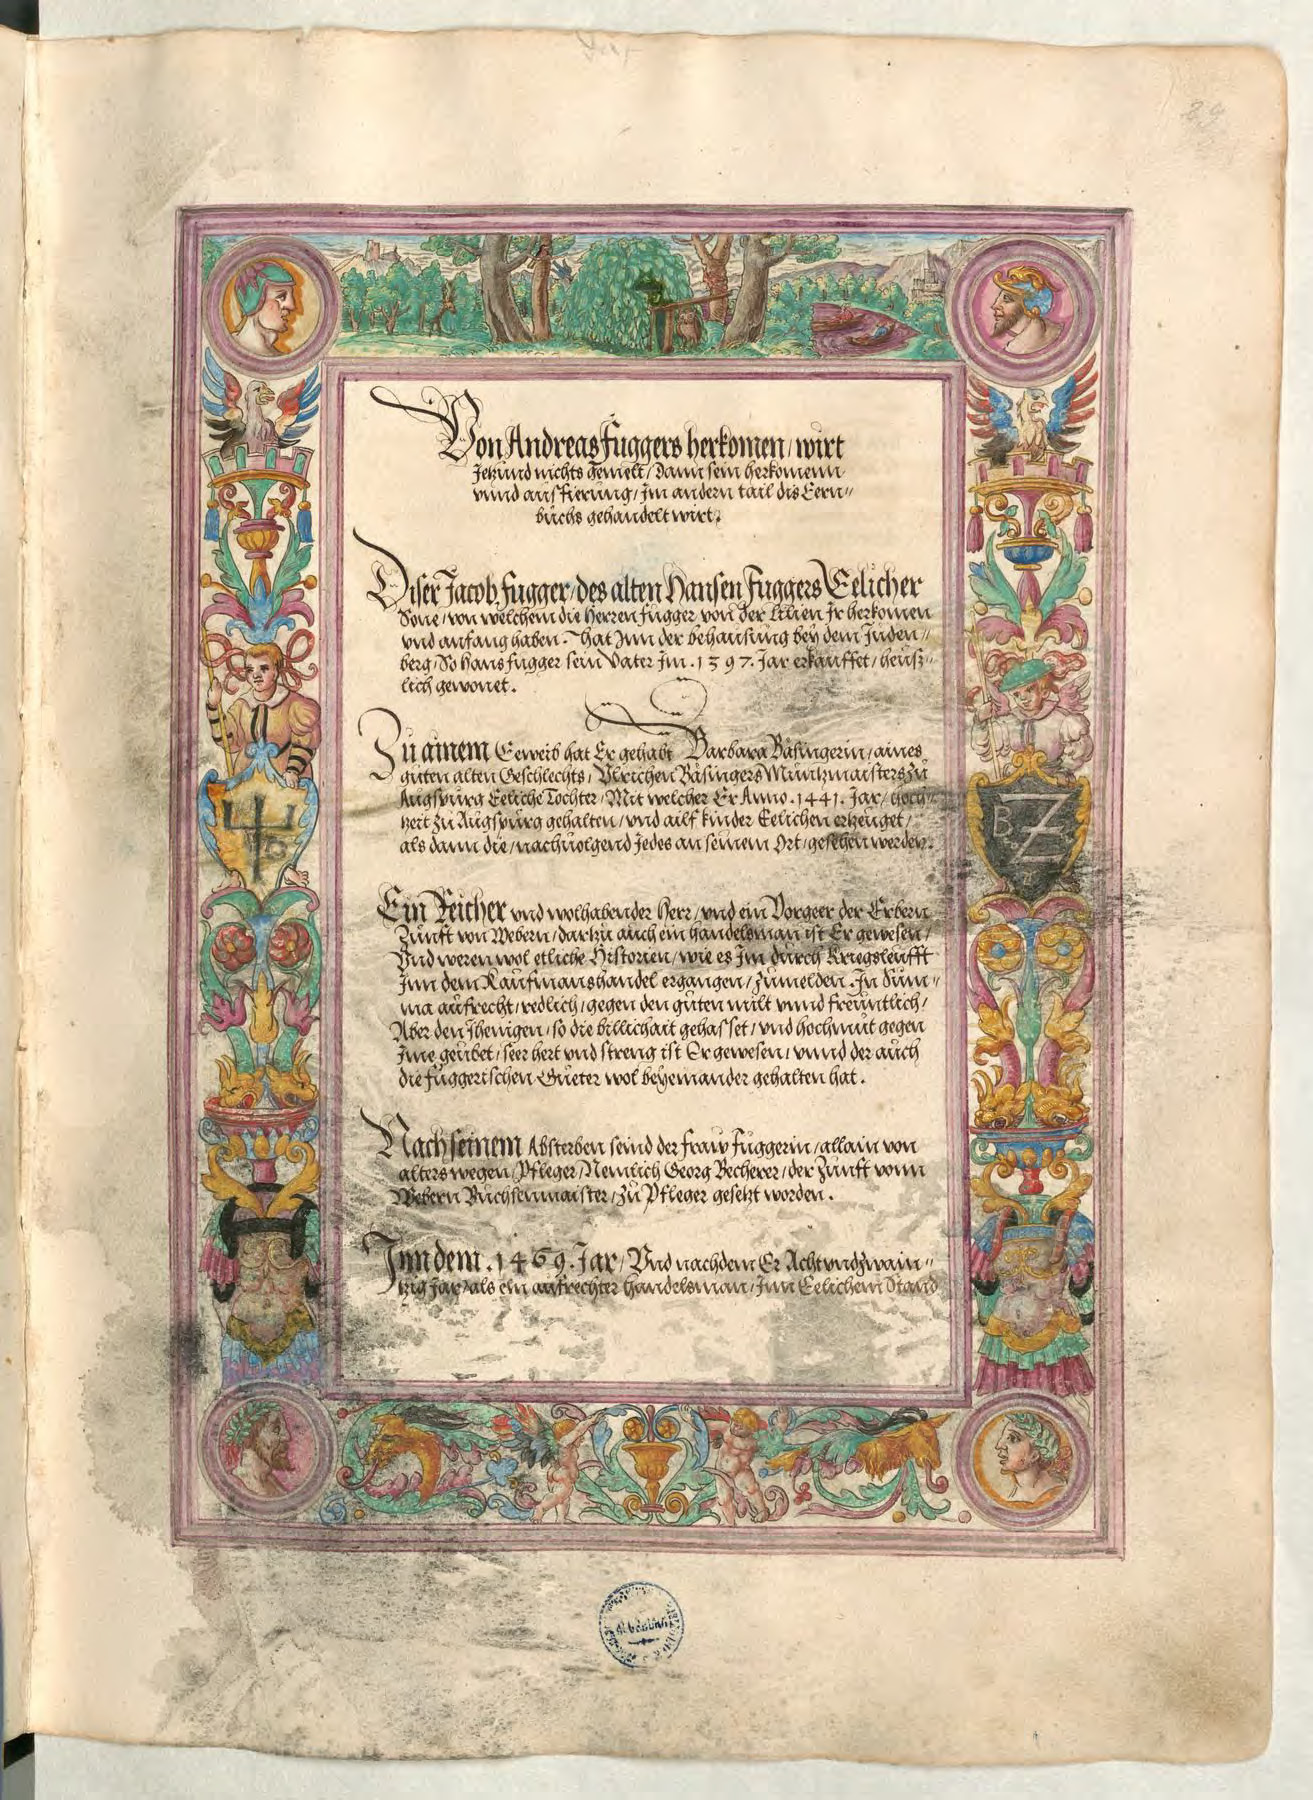 89
Von Andreas Fuggers herkomen / wirt
Jetzund nichts gemelt / Dann sein herkomenn
vnnd ausfierung / Im andern tail dis Eern⸗
buchs gehandelt wirt.
Diser Jacob Fugger / des alten Hansen Fuggers Eelicher
Sone / von welchem die Herren Fugger von der Lilien Ir herkomen
vnd anfang haben. Hat Inn der behausung bey dem Juden⸗
berg / So Hans Fugger sein Vater Im .1397. Jar erkauffet / heüs⸗
lich gewonet.
Zu ainem Eeweib hat Er gehabt Barbara Bäsingerin / aines
guten alten Geschlechts / Vlrichen Bäsingers Müntzmaisters zu
Augspurg Eeliche Tochter / Mit welcher Er Anno .1441. Jar / hoch⸗
zeit zu Augspurg gehalten / vnd ailf kinder Eelichen erzeuget /
als dann die / nachuolgend Jedes an seinem Ort / gesehen werden.
B Z
Ein Reicher vnd wolhabender Herr / vnd ein Vorgeer der Erbern
Zunft von Webern / darzu auch ein handelsman ist Er gewesen /
Vnd weren wol etliche Historien / wie es Im durch Kriegsleufft
Inn dem Kaufmanshandel ergangen / zumelden. In Sum⸗
ma aufrecht / redlich / gegen den guten milt vnnd freuntlich /
Aber den Jhenigen / so die billichait gehasset / vnd hochmut gegen
Ime geübet / seer hert vnd streng ist Er gewesen / vnnd der auch
die Fuggerischen Güeter wol beyeinander gehalten hat.
Nach seinem Absterben seind der Fraw Fuggerin / allain von
alters wegen / Pfleger / Nemlich Georg Becherer / der Zunft vonn
Webern Büchsenmaister / zu Pfleger gesetzt worden.
Inn dem .1469. Jar / Vnd nachdem Er Achtvndzwain⸗
tzig Jar / als ein aufrechter handelsman / Inn Eelichem Stand